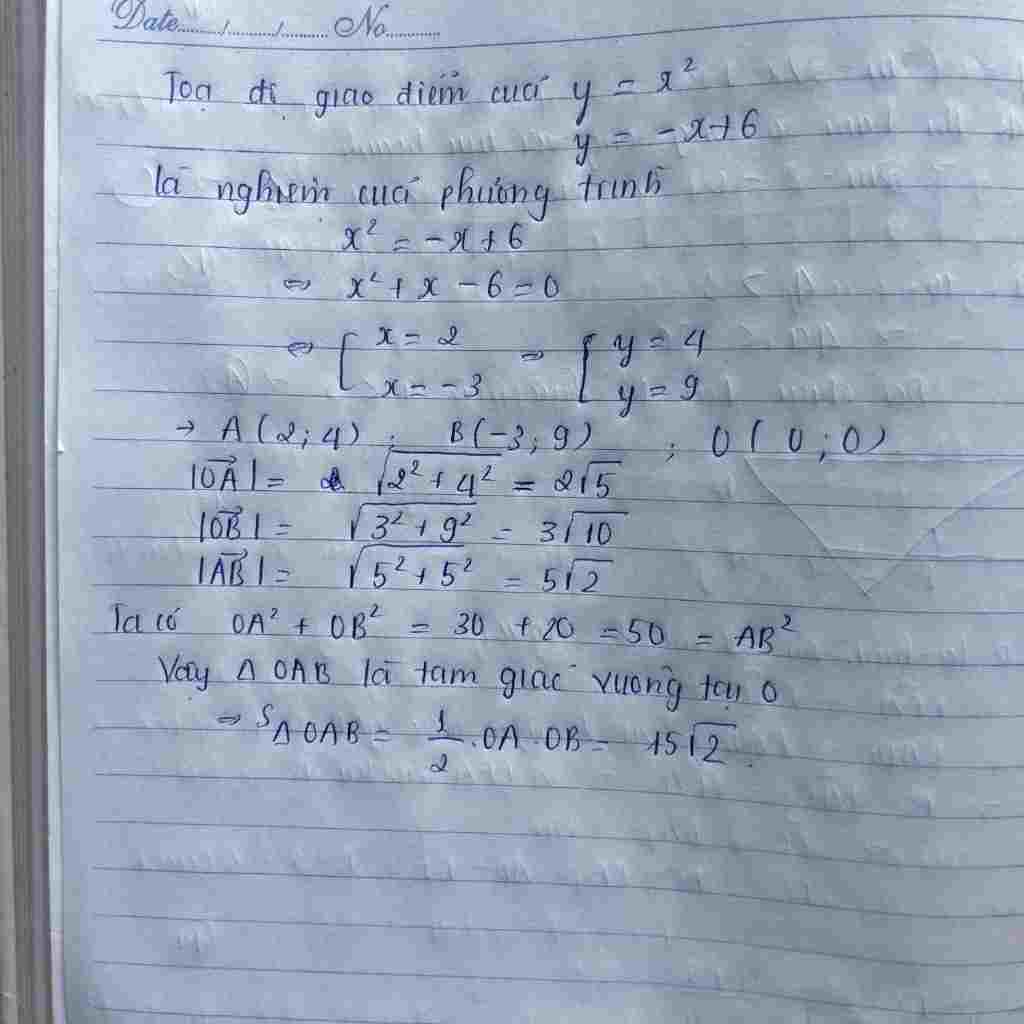 Date......../........../.......... No............
Toạ độ giao điểm của y = x²
y = -x+6
là nghiệm của phương trình
x² = -x+6
⇔ x² + x - 6 = 0
⇔ [ x = 2 ⇒ [ y = 4
x = -3 y = 9
→ A(2; 4) ; B(-3; 9) ; O(0; 0)
|OA| = √(2² + 4²) = 2√5
|OB| = √(3² + 9²) = 3√10
|AB| = √(5² + 5²) = 5√2
Ta có OA² + OB² = 30 + 20 = 50 = AB²
Vậy Δ OAB là tam giác vuông tại O
⇒ SΔOAB = 1/2 . OA . OB = 15√2.